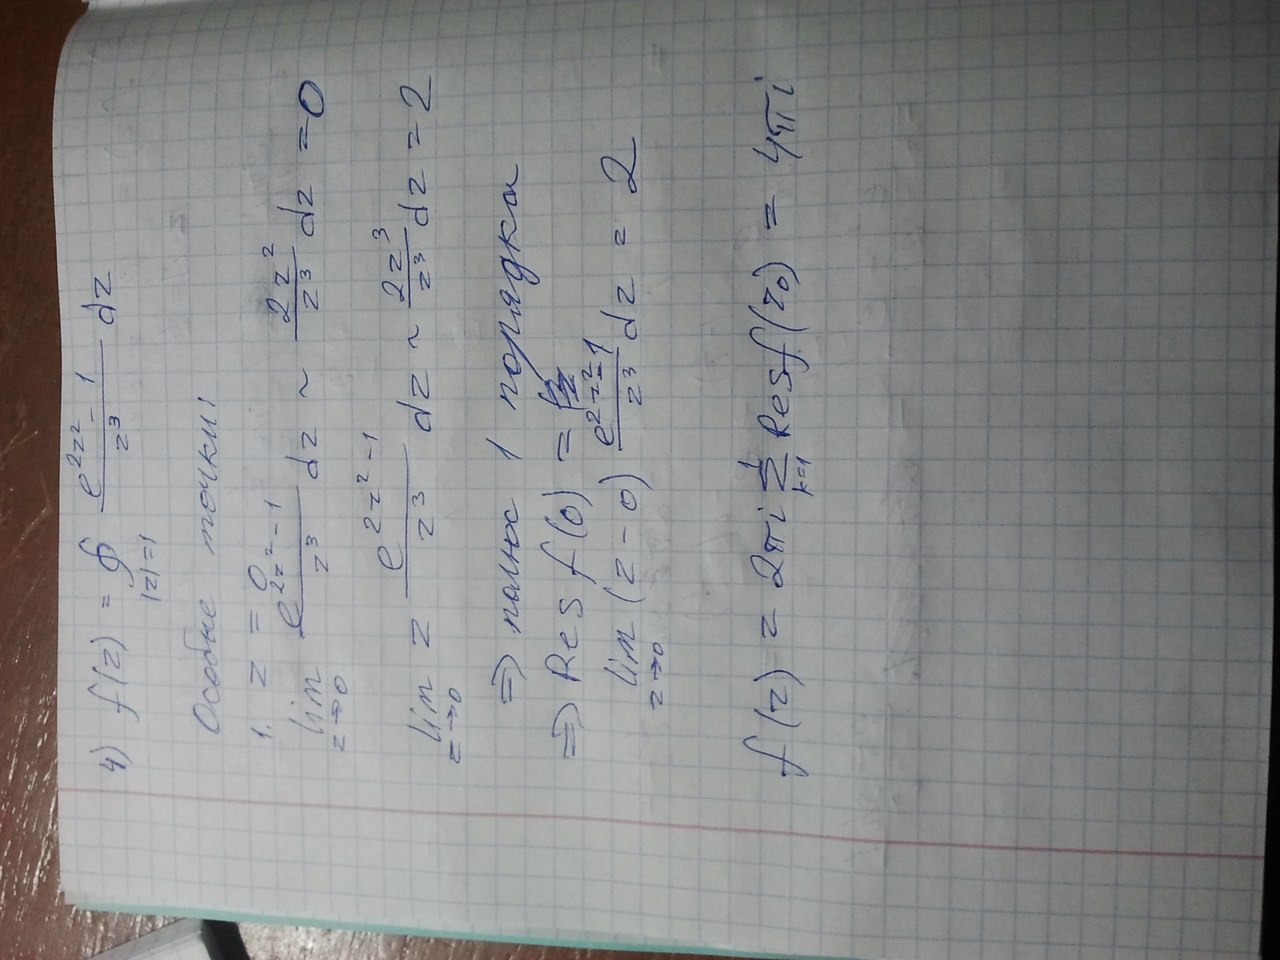 4) f(z) = ∮_{|z|=1} (e^{2z²} - 1)/z³ dz
Особые точки:
1. z = 0
lim_{z→0} (e^{2z²} - 1)/z³ dz ~ 2z²/z³ dz = 0
lim_{z→0} z (e^{2z²} - 1)/z³ dz ~ 2z³/z³ dz = 2
⇒ полюс 1 порядка
⇒ Res f(0) =
lim_{z→0} (z - 0) (e^{2z²} - 1)/z³ dz = 2
f(z) = 2πi ∑_{k=1}^{1} Res f(z₀) = 4πi